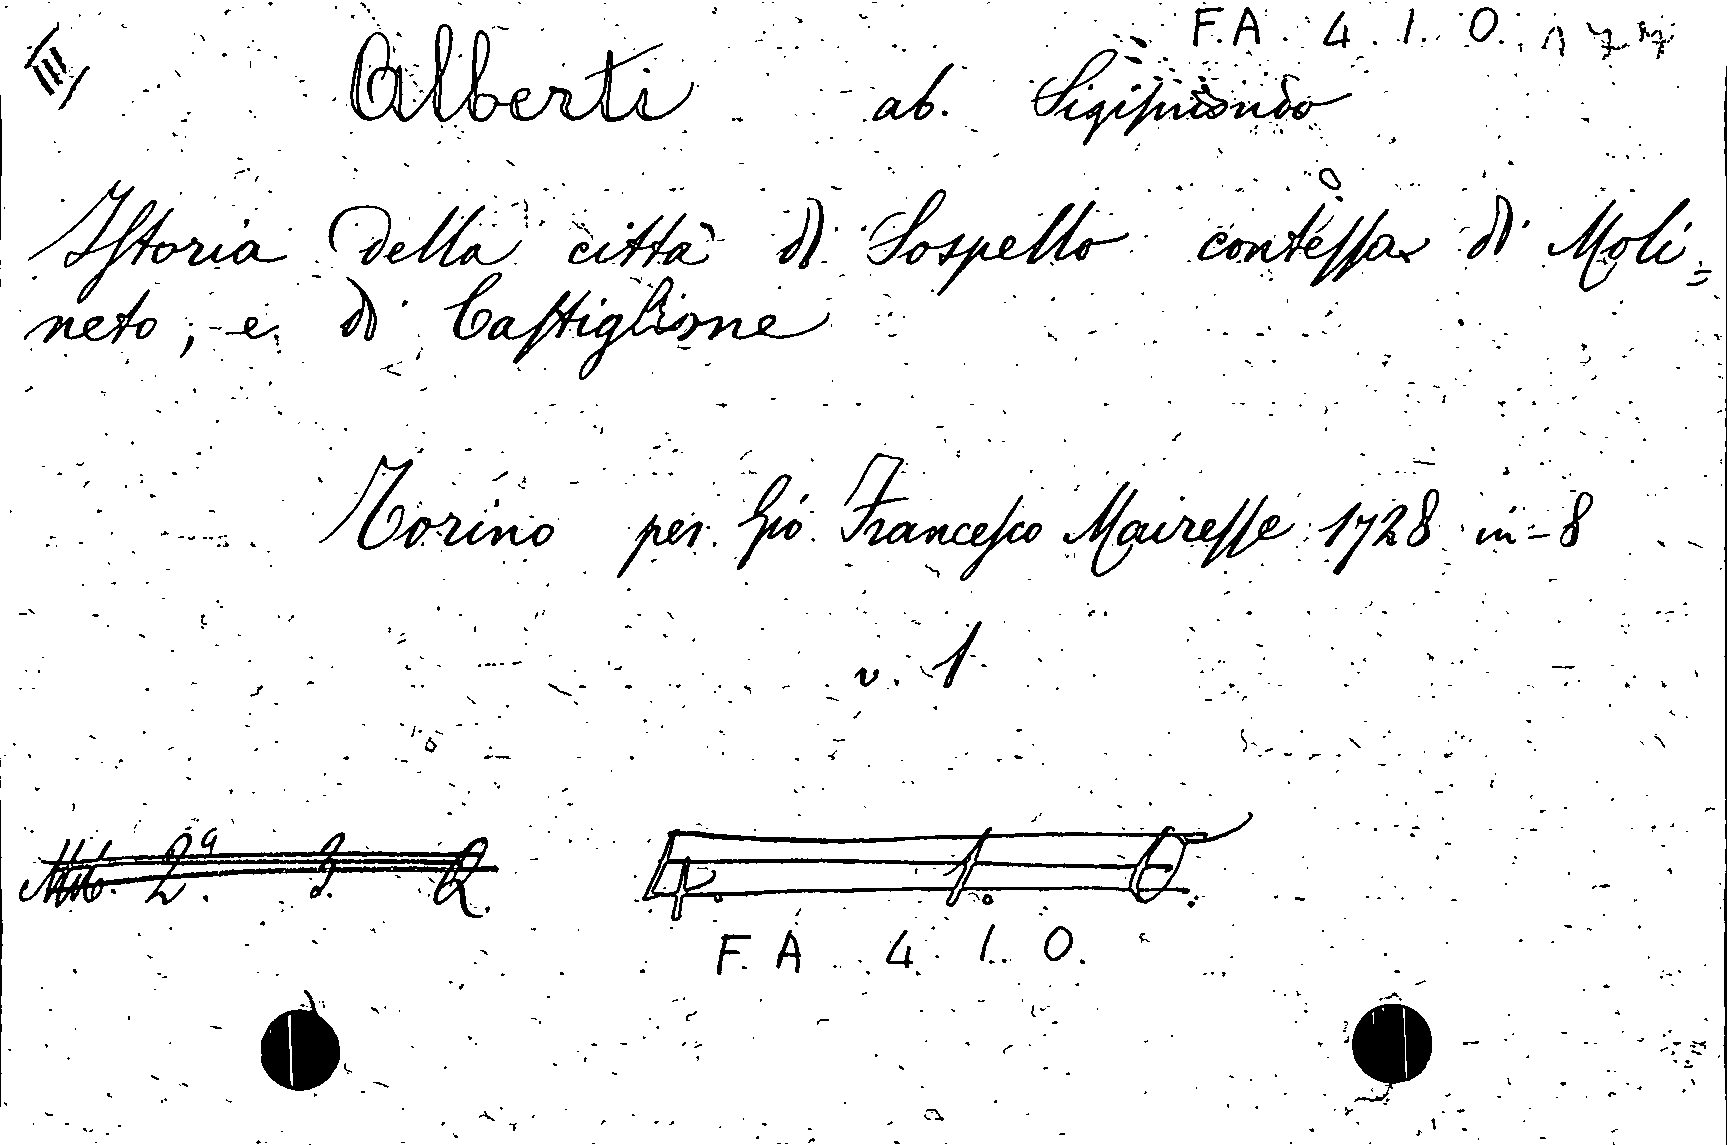 III F.A. 4. I. O. 177
Alberti ab. Sigismondo
Istoria della città di Sospello contessa di Moli=
neto, e di Castiglione
Torino per Gio. Francesco Mairesse 1728 in-8
v. 1
2ª. 3. Q. 4. 1. O.
F. A 4. I. O.